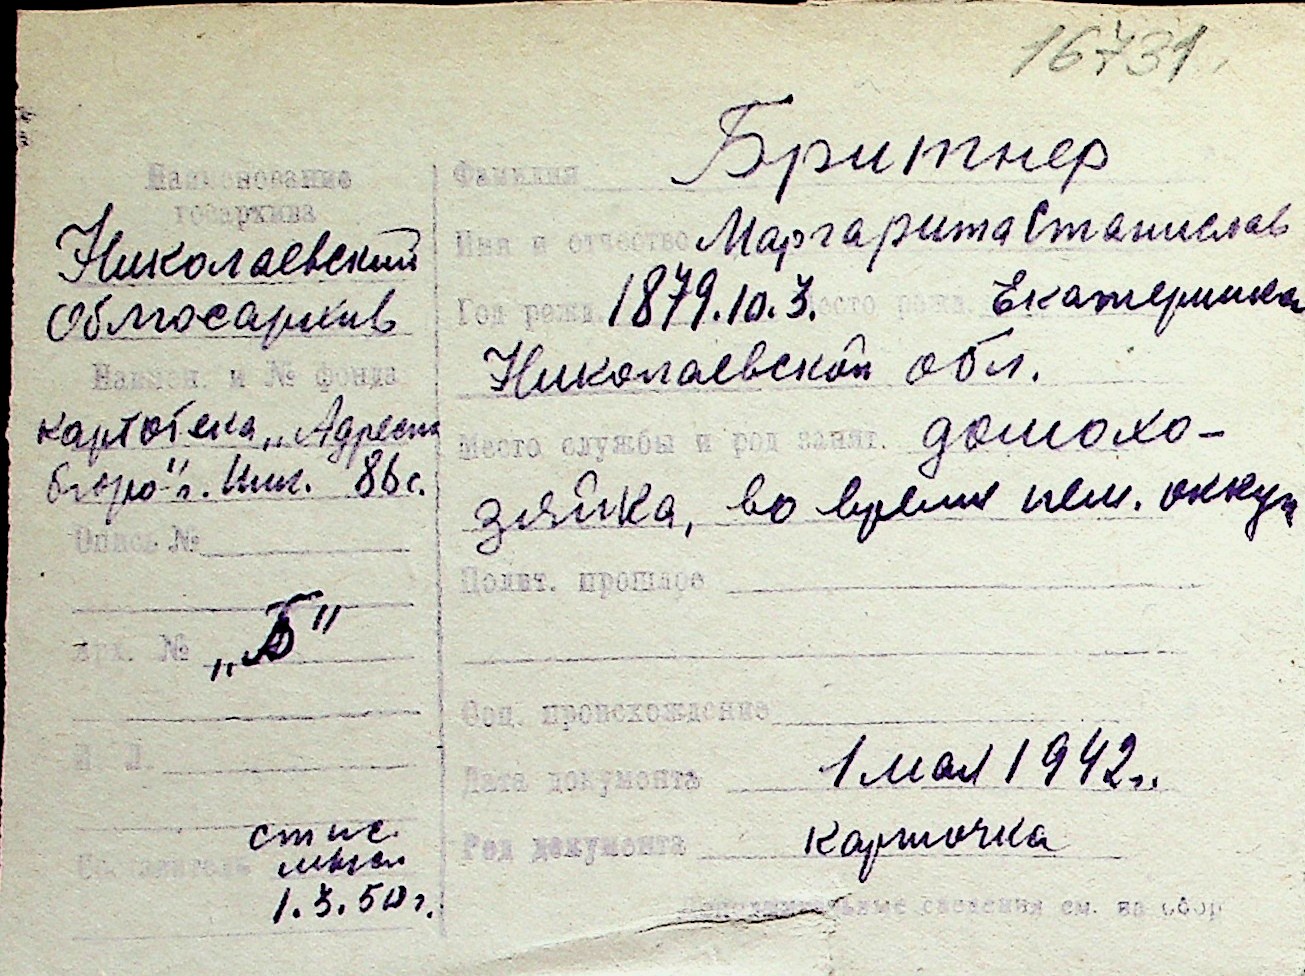 16731
Наименование
госархива
Николаевский
Облгосархив
Наимен. и № фонда
картотека „Адресн
бюро" г. Ник. 86 с.
Опись №
Арх. № „Б"
Л. Л.
Составитель
1.3.50 г.
Фамилия Бритнер
Имя и отчество Маргарита Станислав
Год рожд. 1879.10.3. Место рожд. Екатеринка
Николаевской обл.
Место службы и род занят. домохо-
зяйка, во время нем. оккуп
Полит. прошлое
Соц. происхождение
Дата документа 1 мая 1942 г.
Род документа карточка
Дополнительные сведения см. на обор